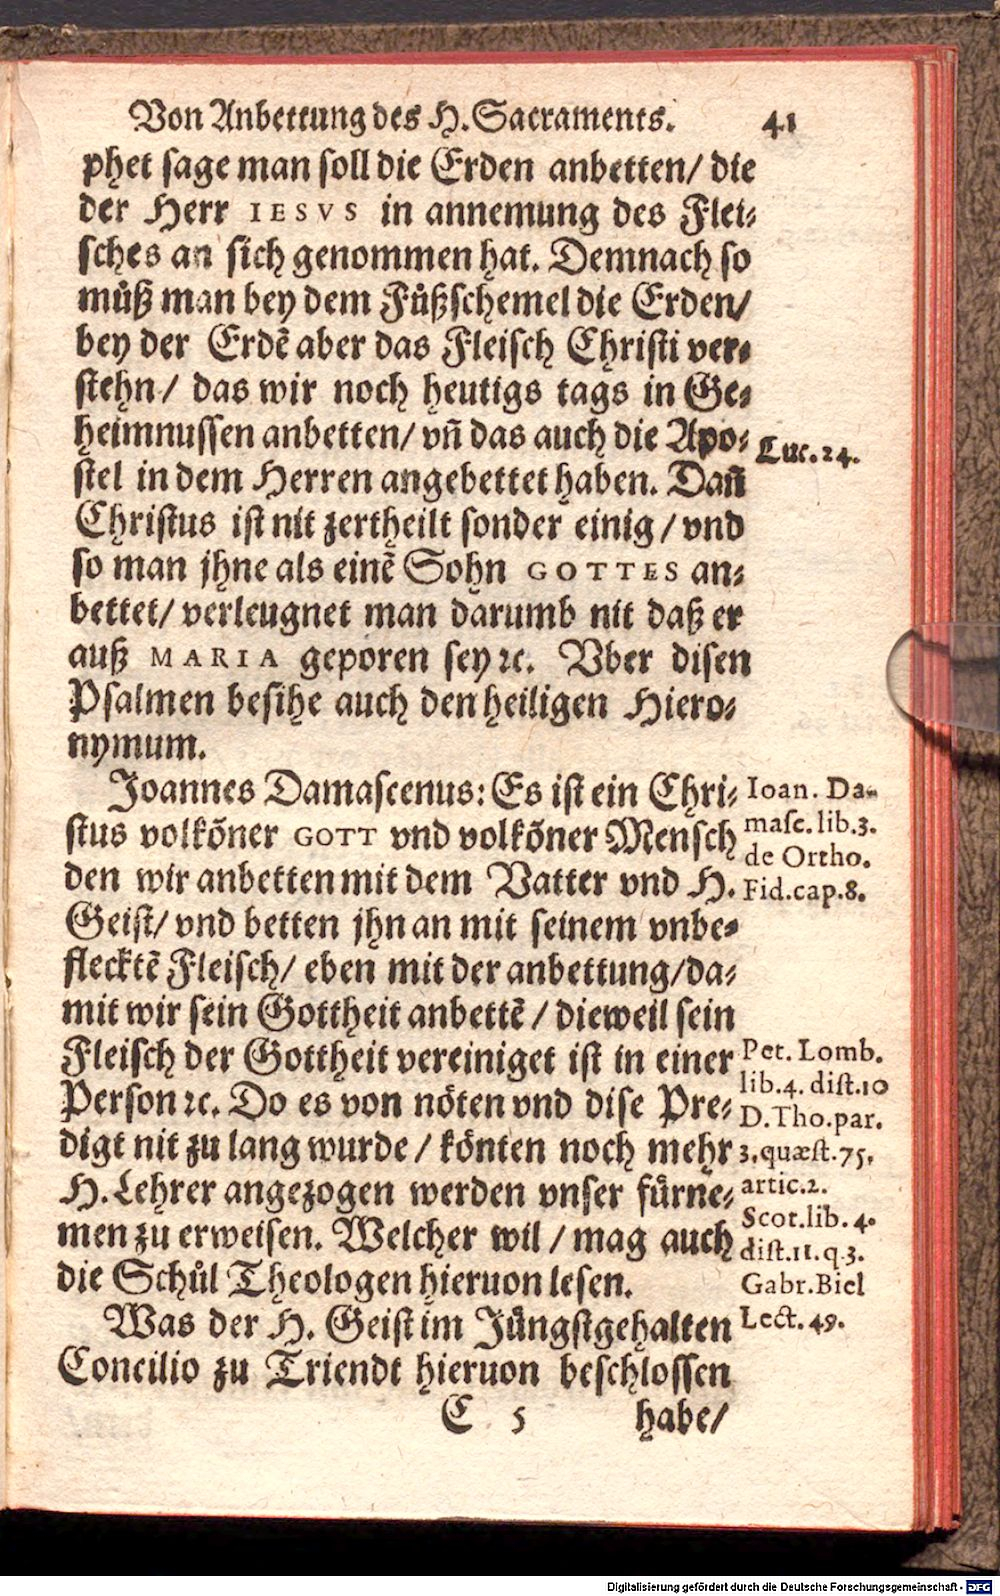 Von Anbettung des H. Sacraments. 41
phet sage man soll die Erden anbetten/ die
der Herr IESVS in annemung des Flei⸗
sches an sich genommen hat. Demnach so
muͤß man bey dem Fuͤßschemel die Erden/
bey der Erdẽ aber das Fleisch Christi ver⸗
stehn/ das wir noch heutigs tags in Ge⸗
heimnussen anbetten/ vñ das auch die Apo⸗
Luc. 24.
stel in dem Herren angebettet haben. Dañ
Christus ist nit zertheilt sonder einig/ vnd
so man jhne als einẽ Sohn GOTTES an⸗
bettet/ verleugnet man darumb nit daß er
auß MARIA geporen sey ꝛc. Vber disen
Psalmen besihe auch den heiligen Hiero⸗
nymum.
Joannes Damascenus: Es ist ein Chri⸗
stus volkõner GOTT vnd volkõner Mensch
den wir anbetten mit dem Vatter vnd H.
Geist/ vnd betten jhn an mit seinem vnbe⸗
flecktẽ Fleisch/ eben mit der anbettung/ da⸗
mit wir sein Gottheit anbettẽ/ dieweil sein
Fleisch der Gottheit vereiniget ist in einer
Person ꝛc. Do es von nöten vnd dise Pre⸗
digt nit zu lang wurde/ könten noch mehr
H. Lehrer angezogen werden vnser fuͤrne⸗
men zu erweisen. Welcher wil/ mag auch
die Schuͤl Theologen hieruon lesen.
Ioan. Da-
masc. lib. 3.
de Ortho.
Fid. cap. 8.
Pet. Lomb.
lib. 4. dist. 10
D. Tho. par.
3. quæst. 75,
artic. 2.
Scot. lib. 4.
dist. 11. q. 3.
Gabr. Biel
Lect. 49.
Was der H. Geist im Juͤngstgehalten
Concilio zu Triendt hieruon beschlossen
C 5 habe/
Digitalisierung gefördert durch die Deutsche Forschungsgemeinschaft - DFG